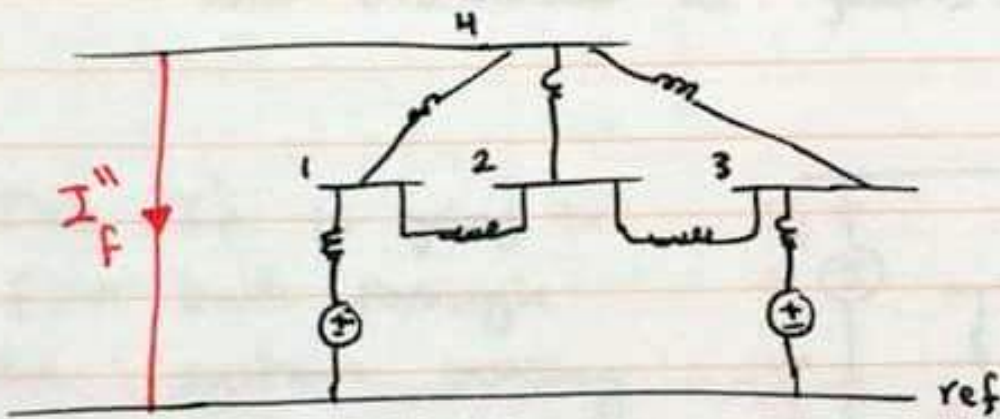 4
1
2
3
I"f
ref